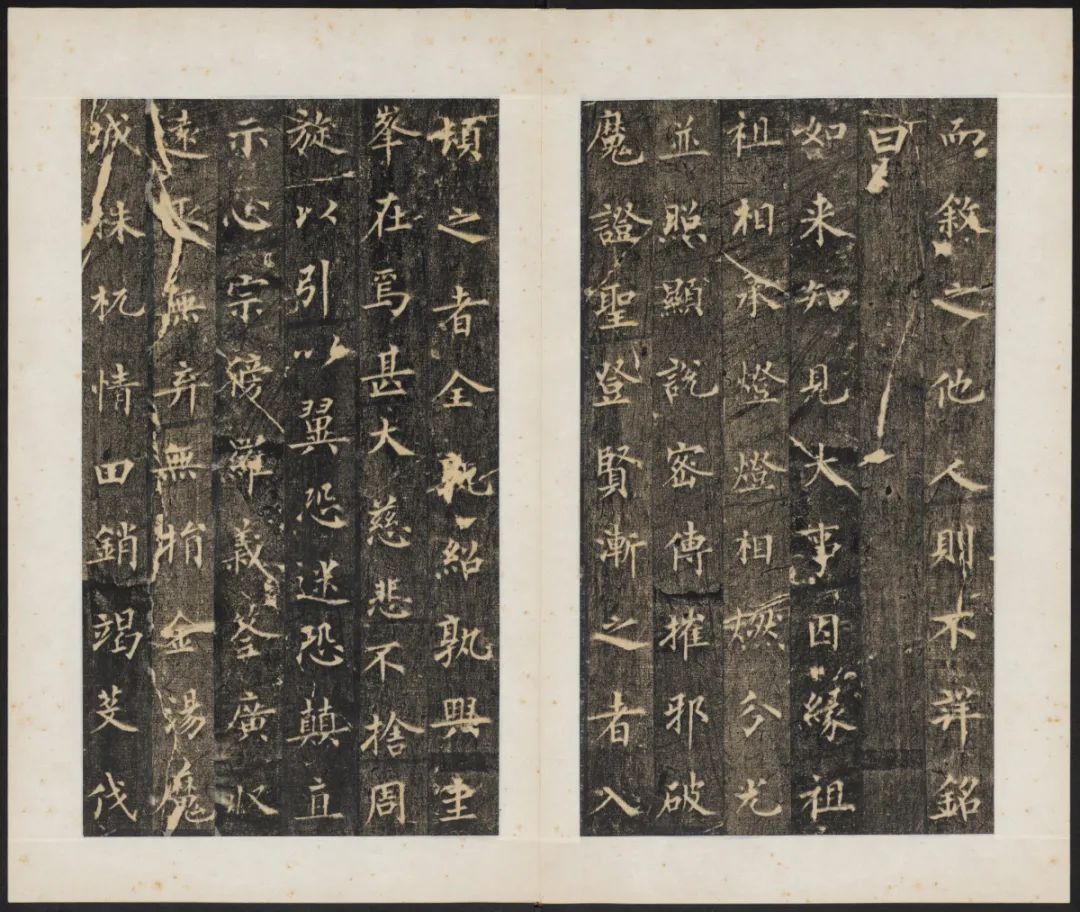 而敘之他人則不詳銘
曰
如来知見大事因緣祖
祖相承燈燈相燃分光
並照顯說密傳摧邪破
魔證聖登賢漸之者入
頓之者全孰紹孰興圭
峯在焉甚大慈悲不捨周
旋以引以翼恐迷恐顛直
示心宗傍辯義筌廣收
遠取無弃無捐金湯魔
城株杌情田銷竭芟伐